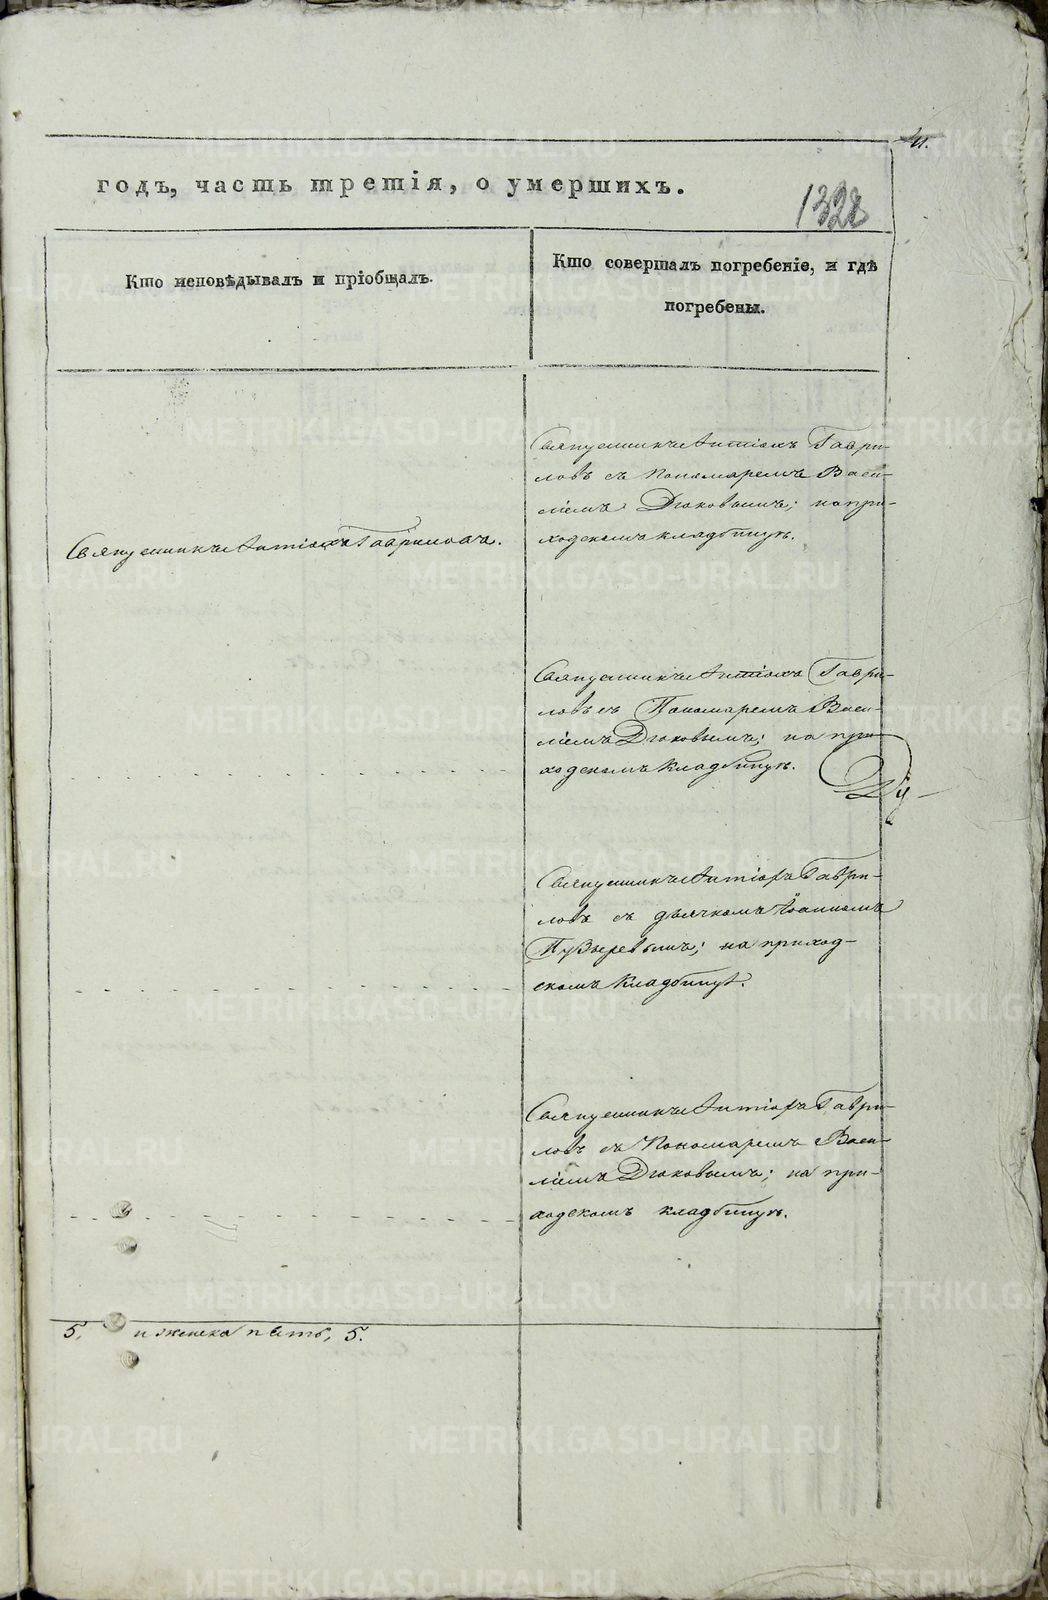 годъ, часть третія, о умершихъ.
1328
Кто исповѣдывалъ и пріобщалъ.
Кто совершалъ погребеніе, и гдѣ
погребены.
Священникъ Антіохъ Гавриловъ.
Священникъ Антіохъ Гаври-
ловъ съ Пономаремъ Васи-
ліемъ Дьяковымъ; на при-
ходскомъ кладбищѣ.
Священникъ Антіохъ Гаври-
ловъ съ Пономаремъ Васи-
ліемъ Дьяковымъ; на при-
ходскомъ кладбищѣ.
Священникъ Антіохъ Гаври-
ловъ съ дьячкомъ Іоанномъ
Пузыревымъ; на приход-
скомъ кладбищѣ.
Священникъ Антіохъ Гаври-
ловъ съ Пономаремъ Васи-
ліемъ Дьяковымъ; на при-
ходскомъ кладбищѣ.
5, и женска пять, 5.
METRIKI.GASO-URAL.RU